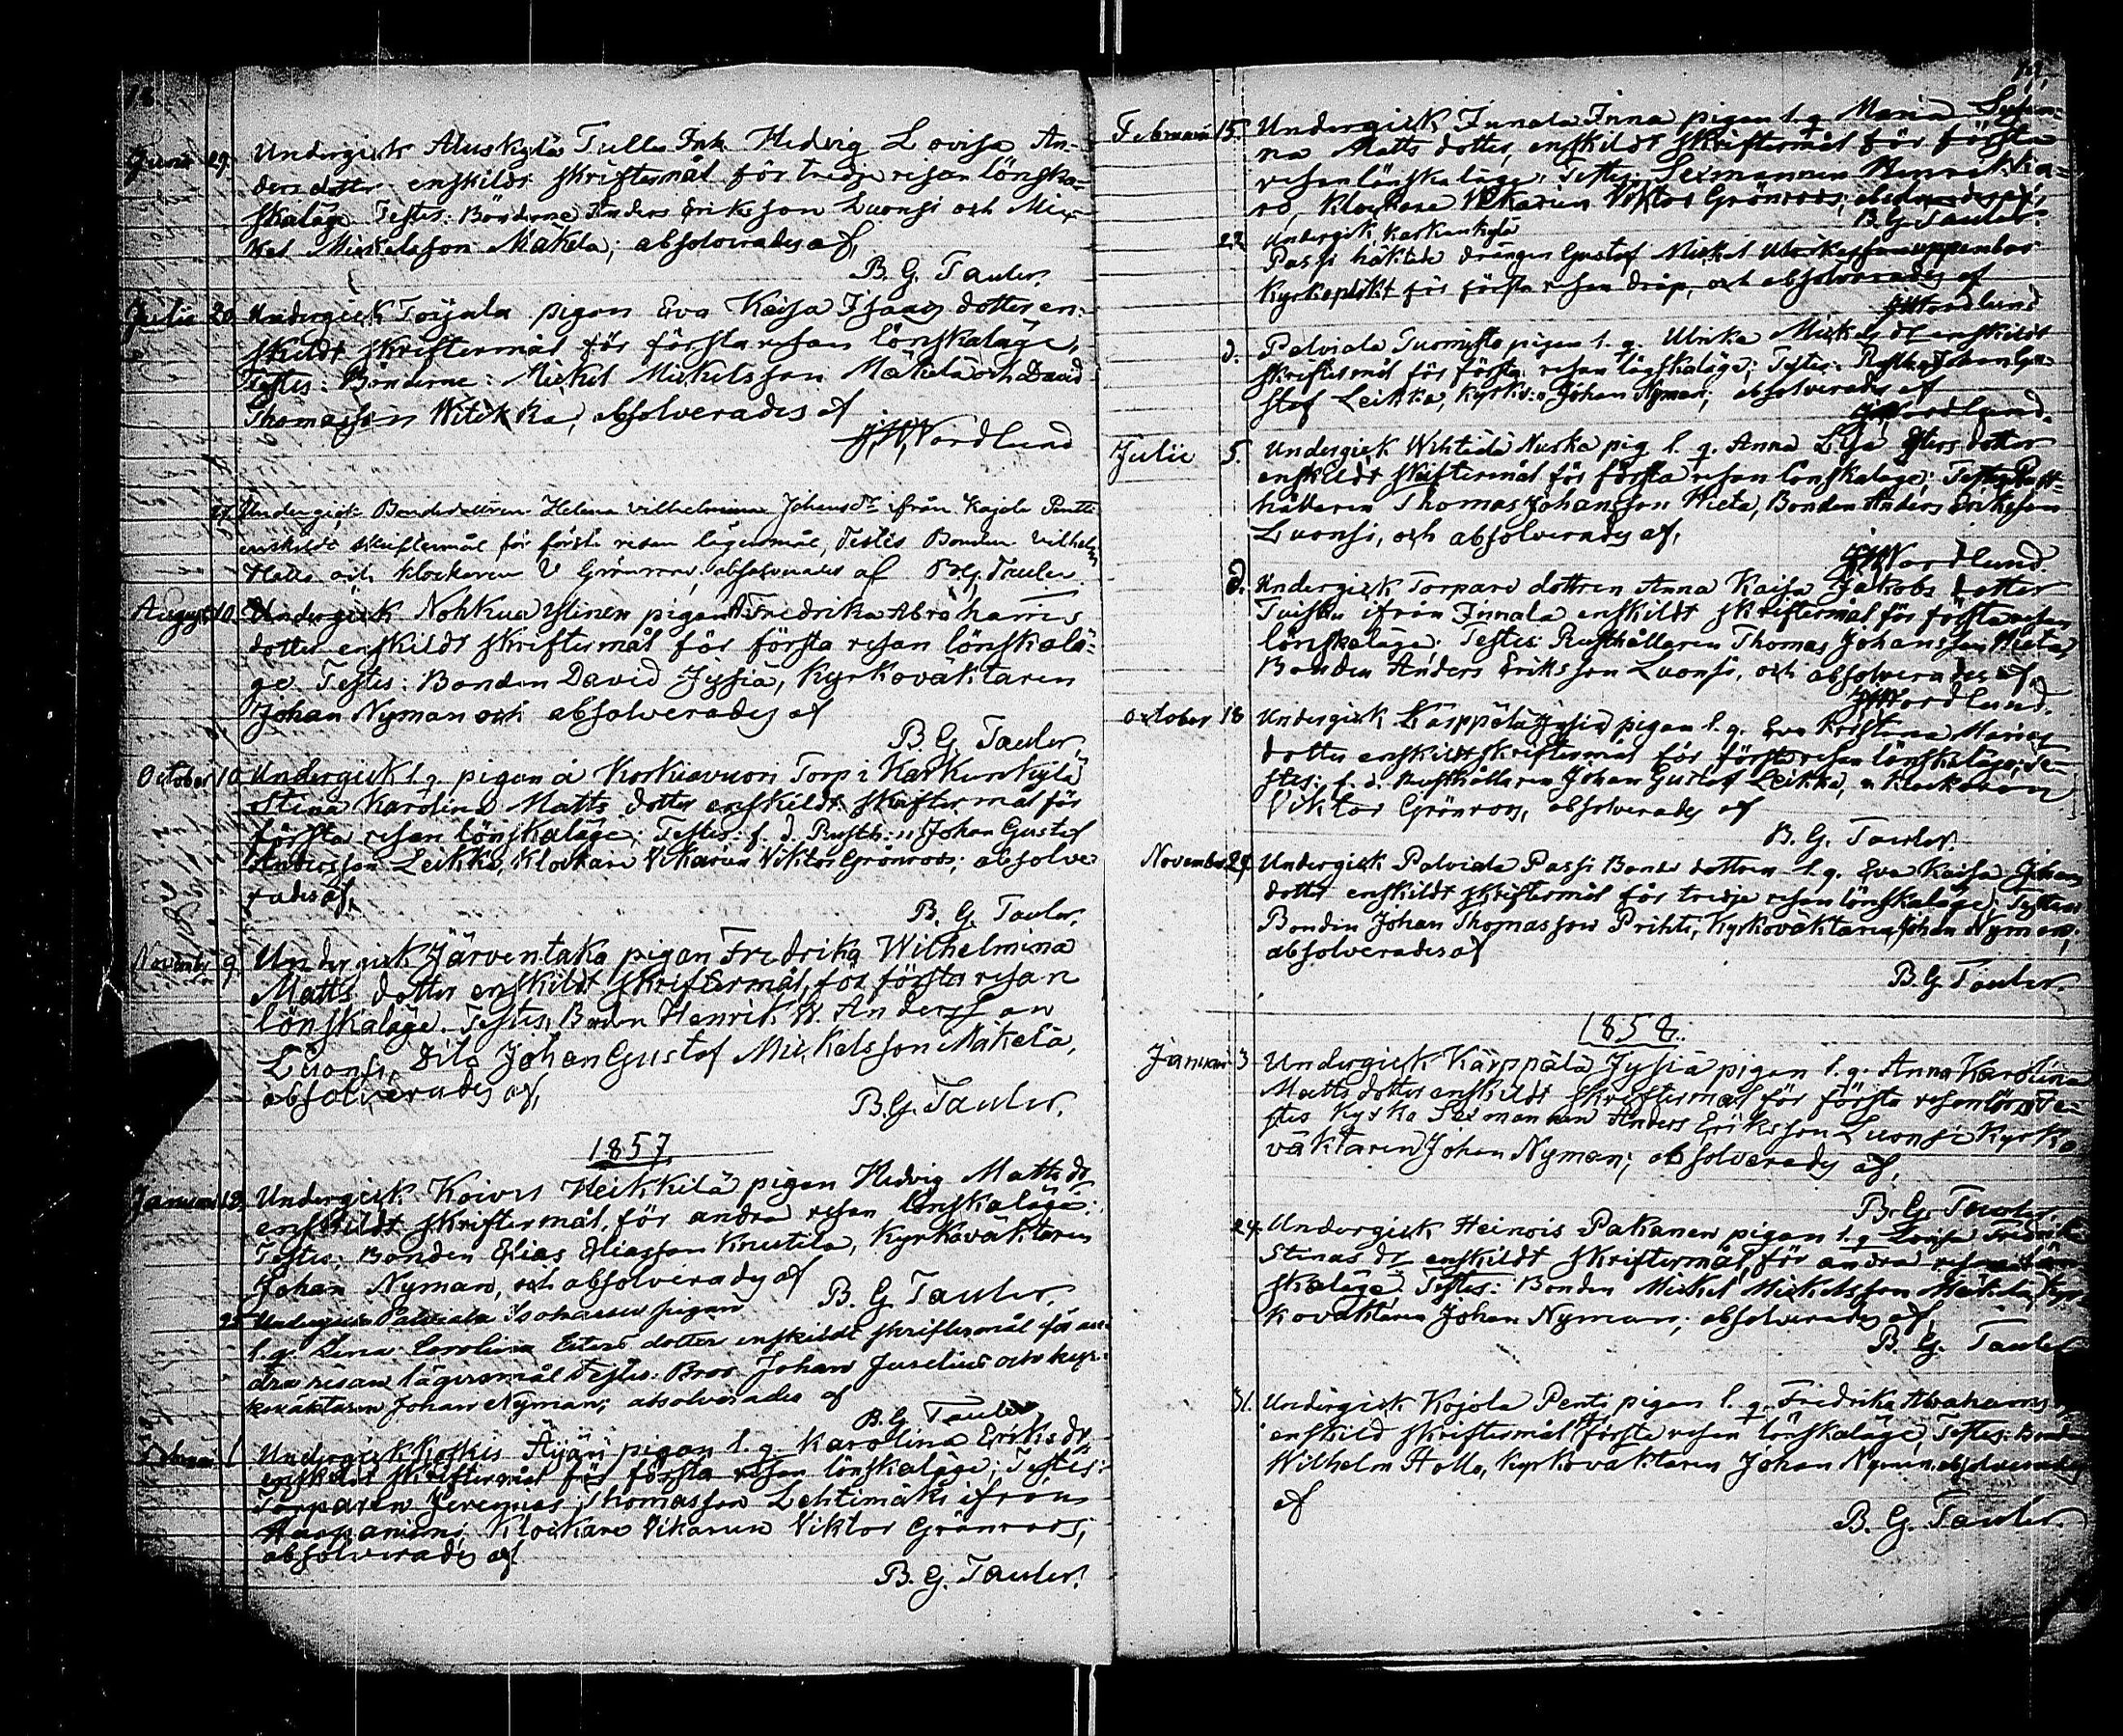 Junii 29. Undergick Aluskylä Tulla Enk. Hedvig Lovisa An-
ders dotter enskildt skriftermål för tredje resan lönska-
skaläge Testes: Bönderne Anders Eriksson Luonsi och Mic-
kel Mickelsson Mäkelä; absolverades af,
B. G. Tauler.
Julii 20 Undergick Toijala pigan Eva Kaisa Isaacs dotter en-
skildt skriftermål för första resan lönskaläge,
Testes: Bönderne: Mickel Mickelsson Mäkelä och David
Thomasson Witikka, absolverades af
Nordlund
27. Undergick Bondedottren Helena Vilhelmina Johansdr ifrån Kojola Pentti
enskildt skriftermål för första resan lägersmål, Testes Bonden Vilhelm
Hollo och klockaren V Grönroos absolverades af B.G. Tauler.
August 10. Undergick Nohkua pigan Fredrika Abrahams
dotter enskildt skriftermål för första resan lönskalä-
ge Testes: Bonden David Jysiä, Kyrkoväktaren
Johan Nyman och absolverades af
B. G. Tauler,
October 10 Undergick l. q. pigan å Korkiavuori Torp i Karkunkylä
Stina Karolina Matts dotter enskildt skriftermål för
första resan lönskaläge; Testes: f. d. Rusth:n Johan Gustaf
Andersson Leikka, Klockare Vikarien Viktor Grönroos; absolve
rades af,
B. G. Tauler,
November 9. Undergick Järventaka pigan Fredrika Wilhelmina
Matts dotter enskildt skriftermål, för första resan
lönskaläge. Testes, Bonden Henrik W. Andersson
Luonsi, Dito Johan Gustaf Mickelsson Mäkelä,
absolverades af,
B. G. Tauler.
1857.
Januari 18. Undergick Koivis Heikkilä pigan Hedvig Matts dr
enskildt skriftermål, för andra resan lönskaläge:
Testes: Bonden Elias Eliasson Knuutila, Kyrkoväktaren
Johan Nyman, och absolverades af
B. G. Tauler.
25 Undergick Palviala Isohannu pigan
l. q. Lina Carolina Esters dotter enskildt skriftermål för an-
dra resan lägersmål Testes: Bror Johan Juselius och kyr-
koväktaren Johan Nyman; absolverades af
B. G. Tauler
Februari 1 Undergick Koskis Äijäri pigan l. q. Karolina Eriks dr
enskildt skriftermål för första resan lönskaläge; Testes:
Torparen Jeremias Thomasson Lehtimäki ifrån
Klockare Vikarien Viktor Grönroos;
absolverades af
B. G. Tauler.
Februarii 15. Undergick Innala Inna pigan l. q. Maria Susan-
na Matts dotter, enskildt skriftermål för första
resan lönskaläge, Testes: Sexmannen Henrik
Klockare Vikarien Viktor Grönroos; absolverades af,
B. G. Tauler.
22 Undergick, Karkunkylä
Passi häktade drängen Gustaf Mickel uppenbar
Kyrkoplikt för första resan dråp, och absolverades af
Nordlund
d. Palviala Tuomisto pigan l. q. Ulrika Mickels dr enskildt
skriftermål för första resan lägskaläge; Testes: Rusth. Johan Gu-
staf Leikka, Kyrkv:n Johan Nyman; absolverades af
Nordlund.
Julii 5. Undergick Wihtiälä Nuska pig. l. q. Anna Lisa Esters dotter
enskildt skriftermål för första resan lönskaläge; Testes Rust-
hållaren Thomas Johansson Wieta, Bonden Anders Eriksson
Luonsi, och absolverades af,
Nordlund.
d. Undergick Torpare dottren Anna Kaisa Jakobs dotter
Tuisku ifrån Innala enskildt skriftermål för första resan
lönskaläge. Testes: Rusthållaren Thomas Johansson Wieta,
Bonden Anders Eriksson Luonsi, och absolverades af,
Nordlund.
October 18 Undergick Kärppälä Jysiä pigan l. q. Eva Kristina Marias
dotter enskildt skriftermål för första resan lönskaläge, Te-
stes: f. d. Rusthållaren Johan Gustaf Leikka, o. klockaren
Viktor Grönroos, absolverades af
B. G. Tauler.
November 29 Undergick Palviala Passi Bonde dottren l. q. Eva Kaisa Johans
dotter enskildt skriftermål för tredje resan lönskaläge; Testes
Bonden Johan Thomasson Prihti, Kyrkoväktaren Johan Nyman;
absolverades af
B. G. Tauler.
1858.
Januari 3 Undergick Kärppälä Jysiä pigan l. q. Anna Karolina
Matts dotter enskildt skriftermål för första resan lönsk. Te-
stes Kyrko Sexmannen Anders Eriksson Luonsi Kyrko
väktaren Johan Nyman; absolverades af,
B. G. Tauler.
24. Undergick Heinois Pakanen pigan l. q. Lovisa Fredrika
Stinas dr enskildt skriftermål för andra resan lön
skaläge. Testes: Bonden Mickel Mickelsson Mäkelä, Kyr-
koväktaren Johan Nyman; absolverades af,
B. G. Tauler
31. Undergick Kojola Penti pigan l. q. Fredrika Abrahams
enskild skriftermål första resan lönskaläge, Testes: Bonden
Wilhelm Hollo, Kyrkoväktaren Johan Nyman, absolverades
af
B. G. Tauler.